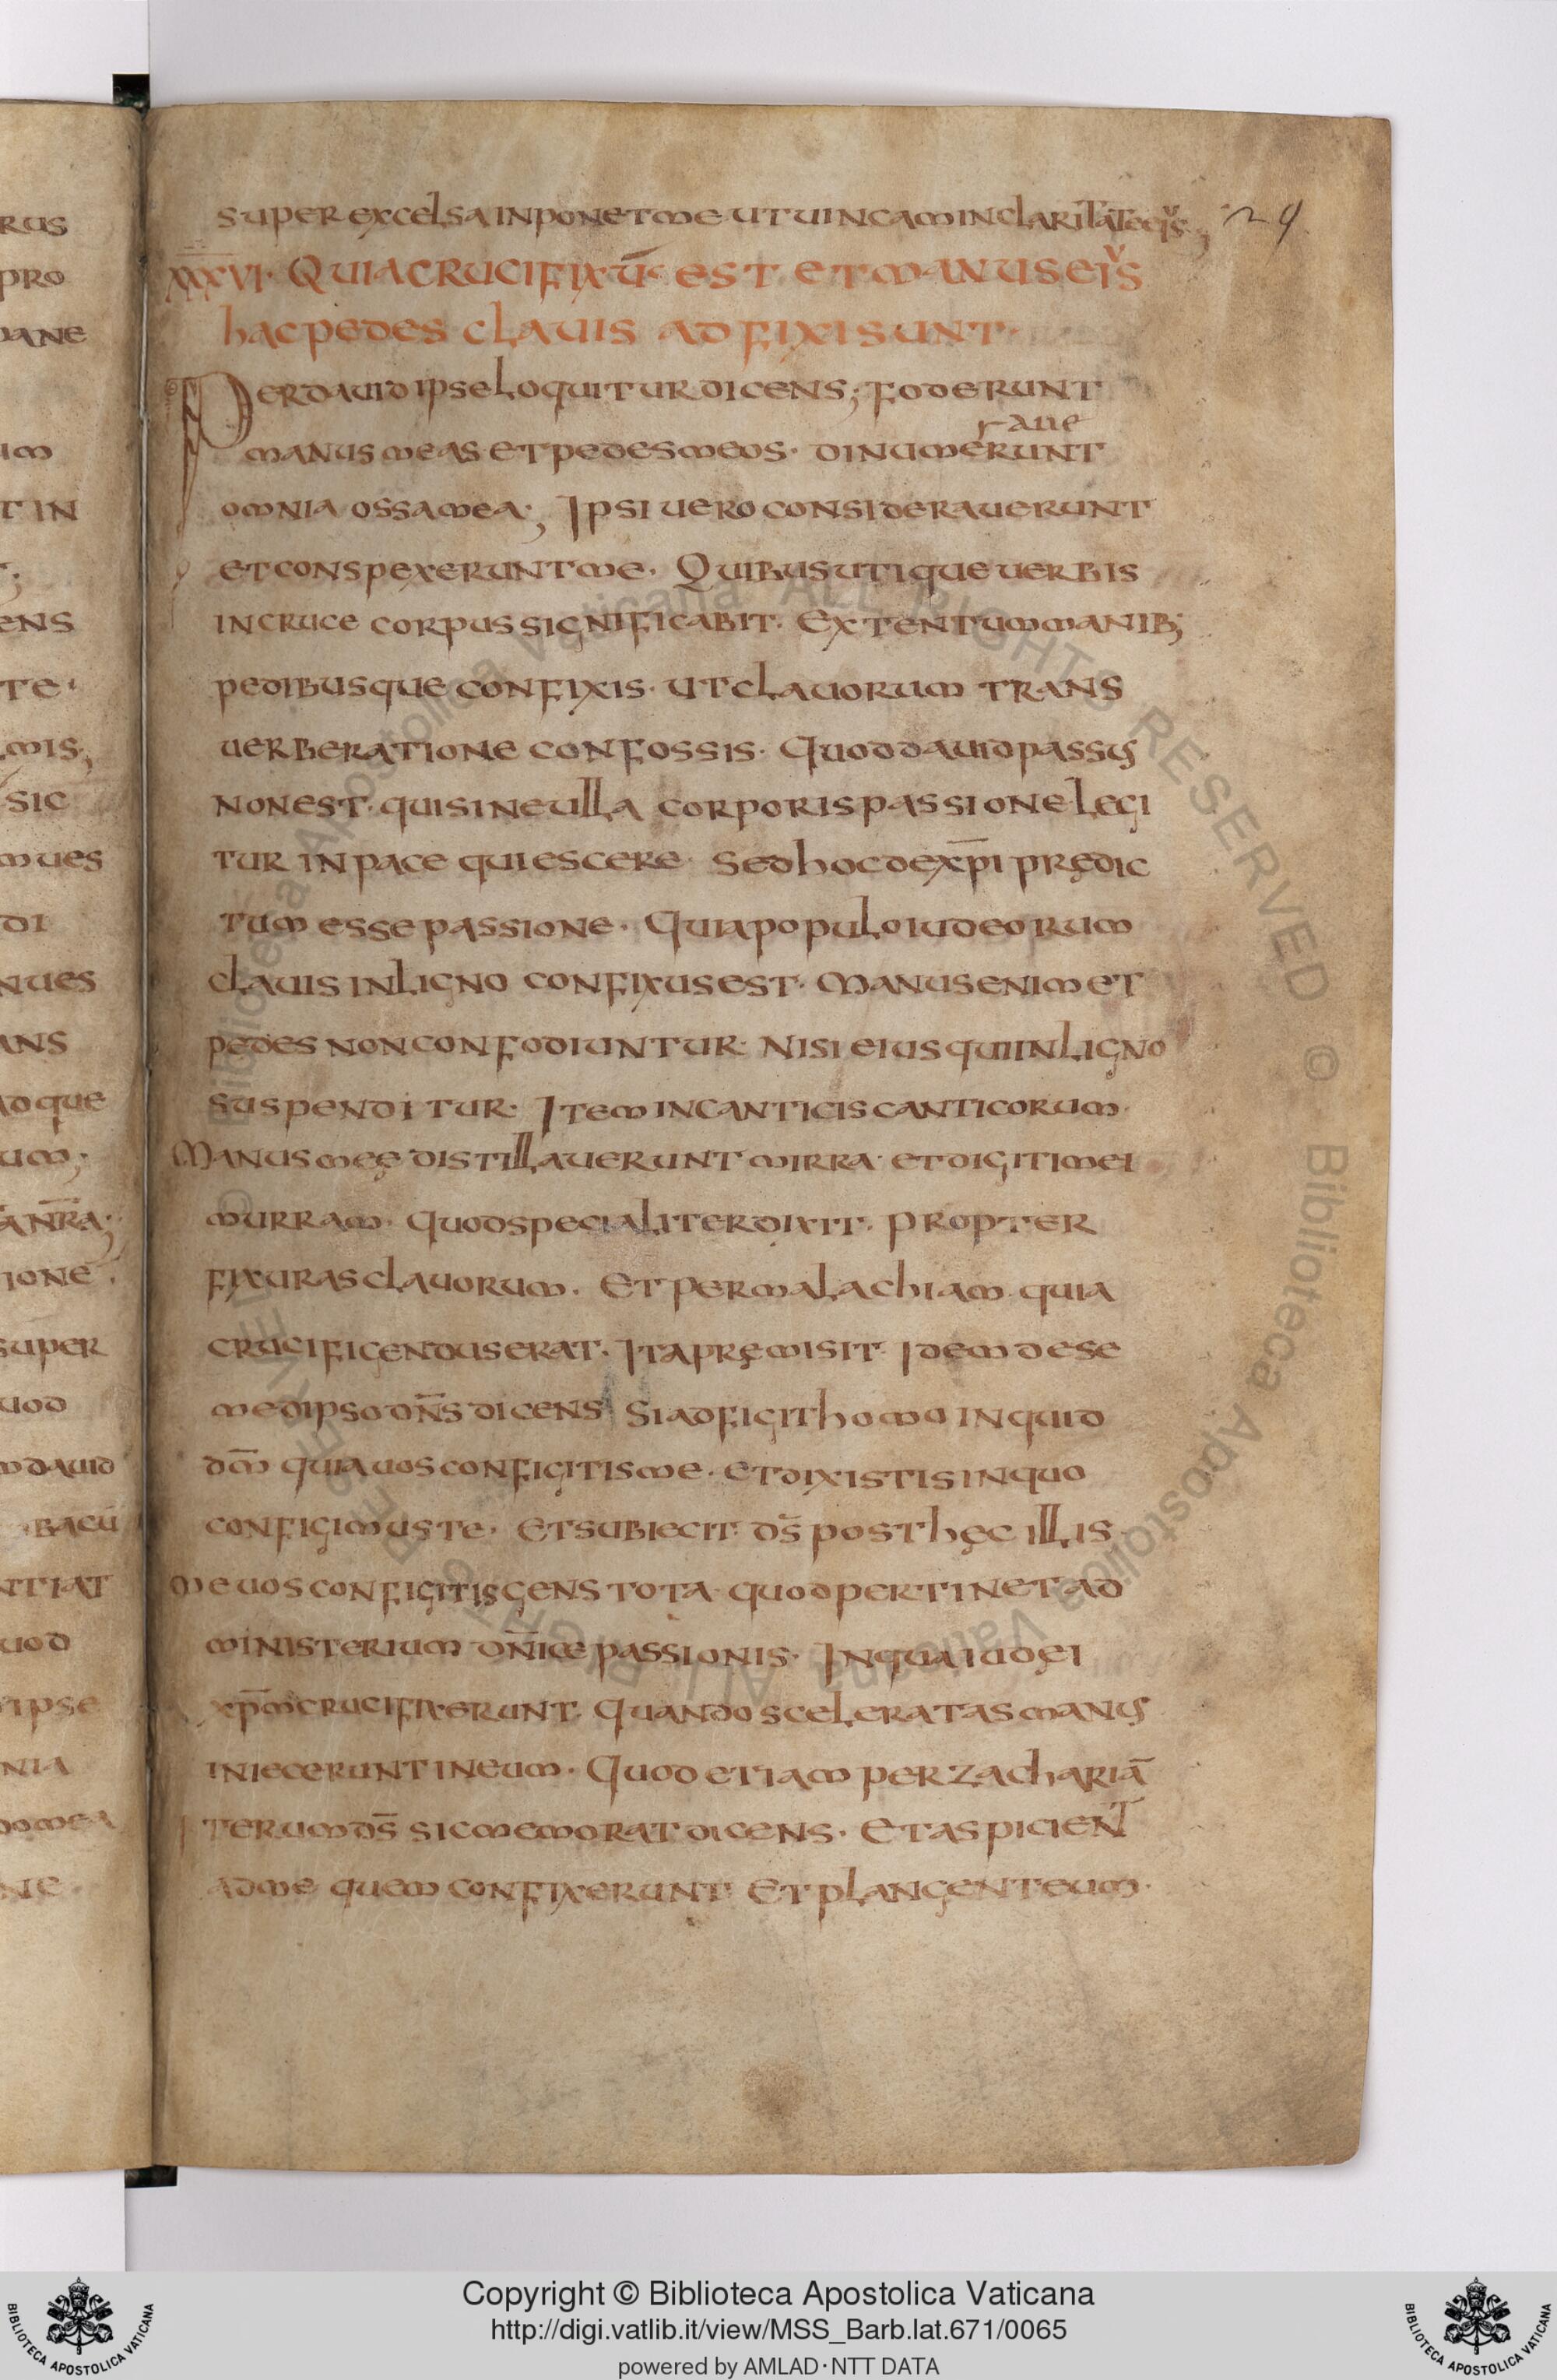 super excelsa inponet me ut uincam in claritate eiˢ; 29
XXXVI. Quia crucifixū est et manus eiˢ
hac pedes clauis adfixi sunt.
Per dauid ipse loquitur dicens; foderunt
raue
manus meas et pedes meos. dinumerunt
omnia ossa mea; Ipsi uero considerauerunt
et conspexerunt me. Quibus utique uerbis
in cruce corpus significabit. Extentum manib;
pedibusque confixis. ut clauorum trans
uerberatione confossis. Quod dauid passus
non est. qui sine ulla corporis passione legi
tur in pace quiescere. Sed hoc de xp̄i prędic
tum esse passione. Quia populo iudeorum
clauis in ligno confixus est. Manus enim et
pedes non confodiuntur. Nisi eius qui in ligno
suspenditur. Item in canticis canticorum.
Manus meę distillauerunt mirra. et digiti mei
murram. quod specialiter dixit. propter
fixuras clauorum. Et per malachiam quia
crucificendus erat. Ita pręmisit. Idem de se
medipso dn̄s dicens Si adfigit homo inquid
dm̄ quia uos configitis me. et dixistis in quo
configimus te. Et subiecit ds̄ post hęc illis.
Me uos configitis gens tota. quod pertinet ad
ministerium dn̄icę passionis. In qua iudęi
xp̄m crucifixerunt. Quando sceleratas manus
iniecerunt in eum. Quod etiam per zachariā
Iterum ds̄ sic memorat dicens. Et aspicient
ad me quem confixerunt. Et plangent eum.
rus
pro
mane
um
t in
ens
te.
mis;
sic
m ues
di
n ues
ans
ad que
um;
a nr̄a;
ione.
super
uod
m dauid
bacū
ntiat
uod
ipse
nia
do mea
ne
© Biblioteca Apostolica Vaticana ALL RIGHTS RESERVED © Biblioteca Apostolica Vaticana ALL RIGHTS RESERVED
Copyright © Biblioteca Apostolica Vaticana
http://digi.vatlib.it/view/MSS_Barb.lat.671/0065
powered by AMLAD·NTT DATA
BIBLIOTECA APOSTOLICA VATICANA
BIBLIOTECA APOSTOLICA VATICANA